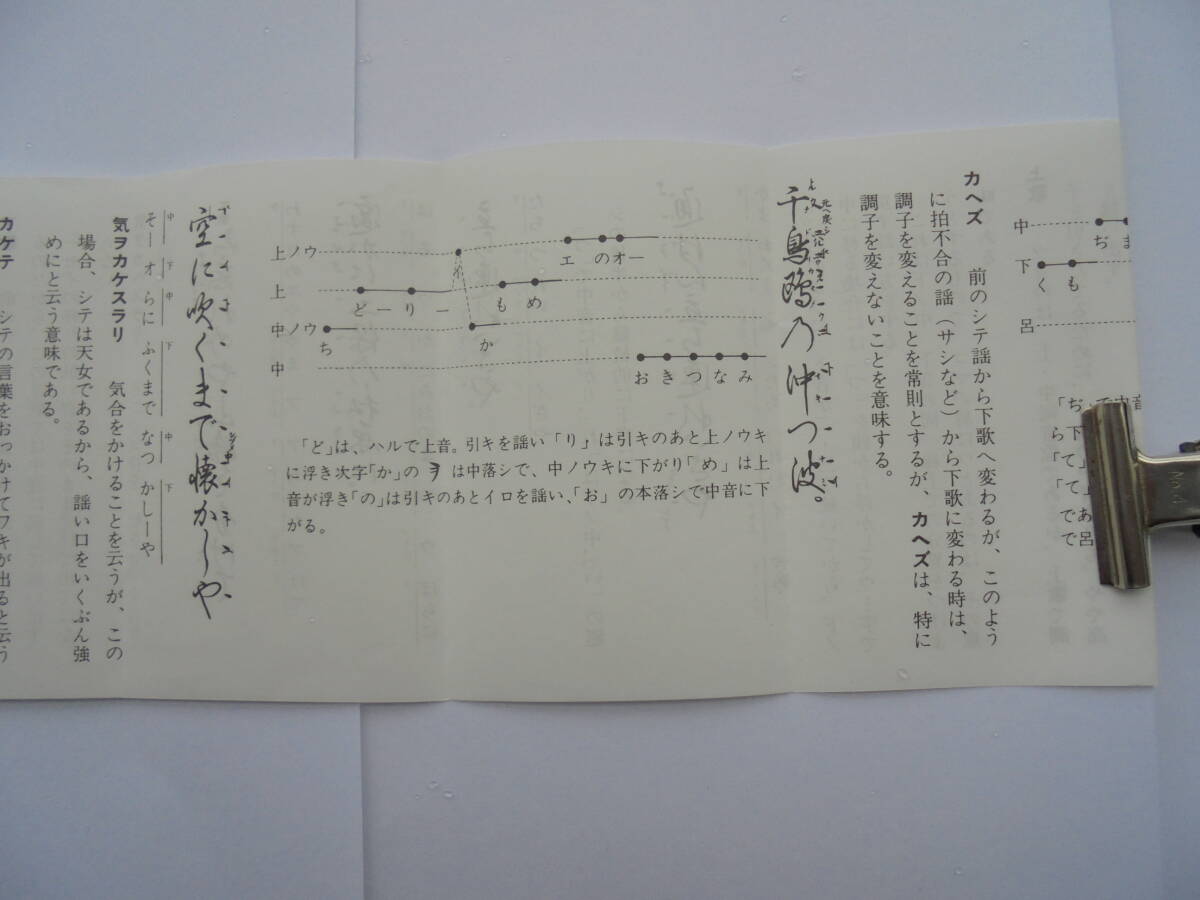 中
ぢ ま
下
く も
呂
「ぢ」で中音
ら下
「て」
「て」
であ
で呂
カヘズ　前のシテ謡から下歌へ変わるが、このよう
に拍不合の謡（サシなど）から下歌に変わる時は、
調子を変えることを常則とするが、カヘズは、特に
調子を変えないことを意味する。
千鳥鴎乃沖つ波。
上ノウ
め
エ のオー
上
どー りー
も め
中ノウ
ち
か
中
お き つ な み
「ど」は、ハルで上音。引キを謡い「り」は引キのあと上ノウキ
に浮き次字「か」の は中落シで、中ノウキに下がり「め」は上
音が浮き「の」は引キのあとイロを謡い、「お」の本落シで中音に下
がる。
空に吹くまで懐かしや
中 下 中 下 中 下
そー オ らに ふくまで なつ かしーや
気ヲカケスラリ　気合をかけることを云うが、この
場合、シテは天女であるから、謡い口をいくぶん強
めにと云う意味である。
カケテ　シテの言葉をおっかけてワキが出ると云う